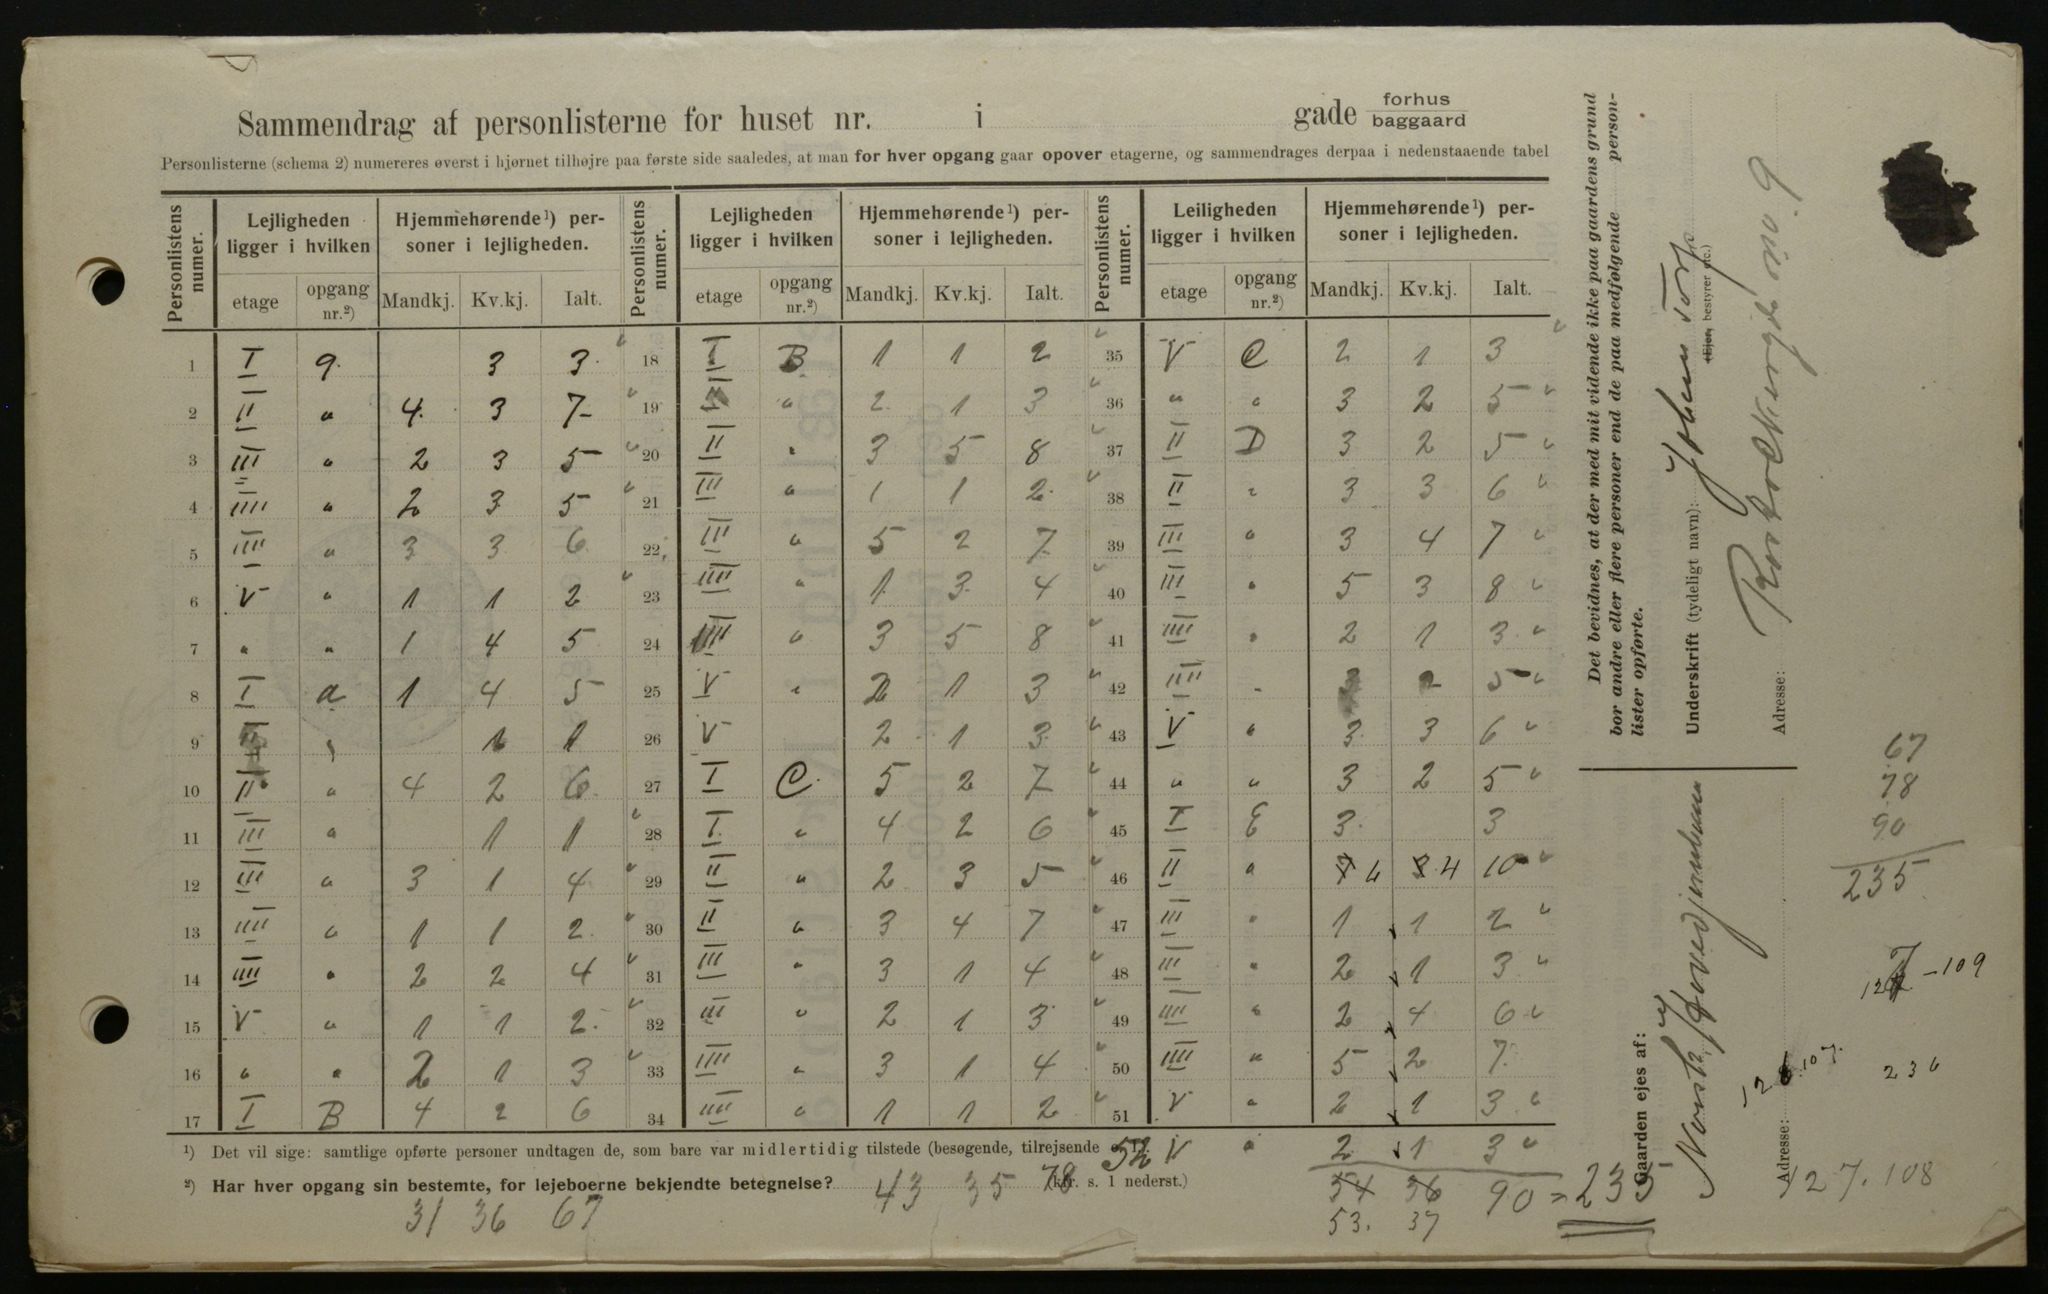 Sammendrag af personlisterne for huset nr. i gade forhus baggaard
Personlisterne (schema 2) numereres øverst i hjørnet tilhøjre paa første side saaledes, at man for hver opgang gaar opover etagerne, og sammendrages derpaa i nedenstaaende tabel
Personlistens numer. Lejligheden ligger i hvilken Hjemmehørende¹) personer i lejligheden. Personlistens numer. Lejligheden ligger i hvilken Hjemmehørende¹) personer i lejligheden. Personlistens numer. Leiligheden ligger i hvilken Hjemmehørende¹) personer i lejligheden.
etage opgang nr.²) Mandkj. Kv.kj. Ialt. etage opgang nr.²) Mandkj. Kv.kj. Ialt. etage opgang nr.²) Mandkj. Kv.kj. Ialt.
1 I 9. 3 3. 18 I B 1 1 2 35 V C 2 1 3
2 II " 4. 3 7 19 " 2 1 3 36 " " 3 2 5
3 III " 2 3 5 20 II " 3 5 8 37 II D 3 2 5
4 IIII " 2 3 5 21 III " 1 1 2 38 II " 3 3 6
5 IIII " 3 3 6 22 III " 5 2 7 39 III " 3 4 7
6 V " 1 1 2 23 IIII " 1 3 4 40 III " 5 3 8
7 " " 1 4 5 24 IIII " 3 5 8 41 IIII " 2 1 3
8 I a 1 4 5 25 V " 2 1 3 42 IIII " 2 5
9 II " 1 1 26 V 2 1 3 43 V " 3 3 6
10 II " 4 2 6 27 I C. 5 2 7 44 " " 3 2 5
11 III " 1 1 28 I " 4 2 6 45 I E 3 3
12 III " 3 1 4 29 II " 2 3 5 46 II " 7 6 3 4 10
13 IIII " 1 1 2 30 II " 3 4 7 47 III " 1 1 2
14 IIII " 2 2 4 31 III " 3 1 4 48 III " 2 1 3
15 V " 1 1 2 32 III " 2 1 3 49 IIII " 2 4 6
16 " " 2 1 3 33 IIII " 3 1 4 50 IIII " 5 2 7
17 I B 4 2 6 34 IIII " 1 1 2 51 V " 2 1 3
¹) Det vil sige: samtlige opførte personer undtagen de, som bare var midlertidig tilstede (besøgende, tilrejsende 52 V " 2 1 3
²) Har hver opgang sin bestemte, for lejeboerne bekjendte betegnelse? (kfr. s. 1 nederst.)
31 36 67 43 35 78 54 36 90 = 235
53. 37
Det bevidnes, at der med mit vidende ikke paa gaardens grund
bor andre eller flere personer end de paa medfølgende personlister opførte.
Underskrift (tydeligt navn): Johan
(Ejer, bestyrer etc.)
Adresse: no. 9
Gaarden ejes af:
Norsk Hovedjernbane
Adresse:
67
78
90
235
127 - 109
236
128.107.
127.108